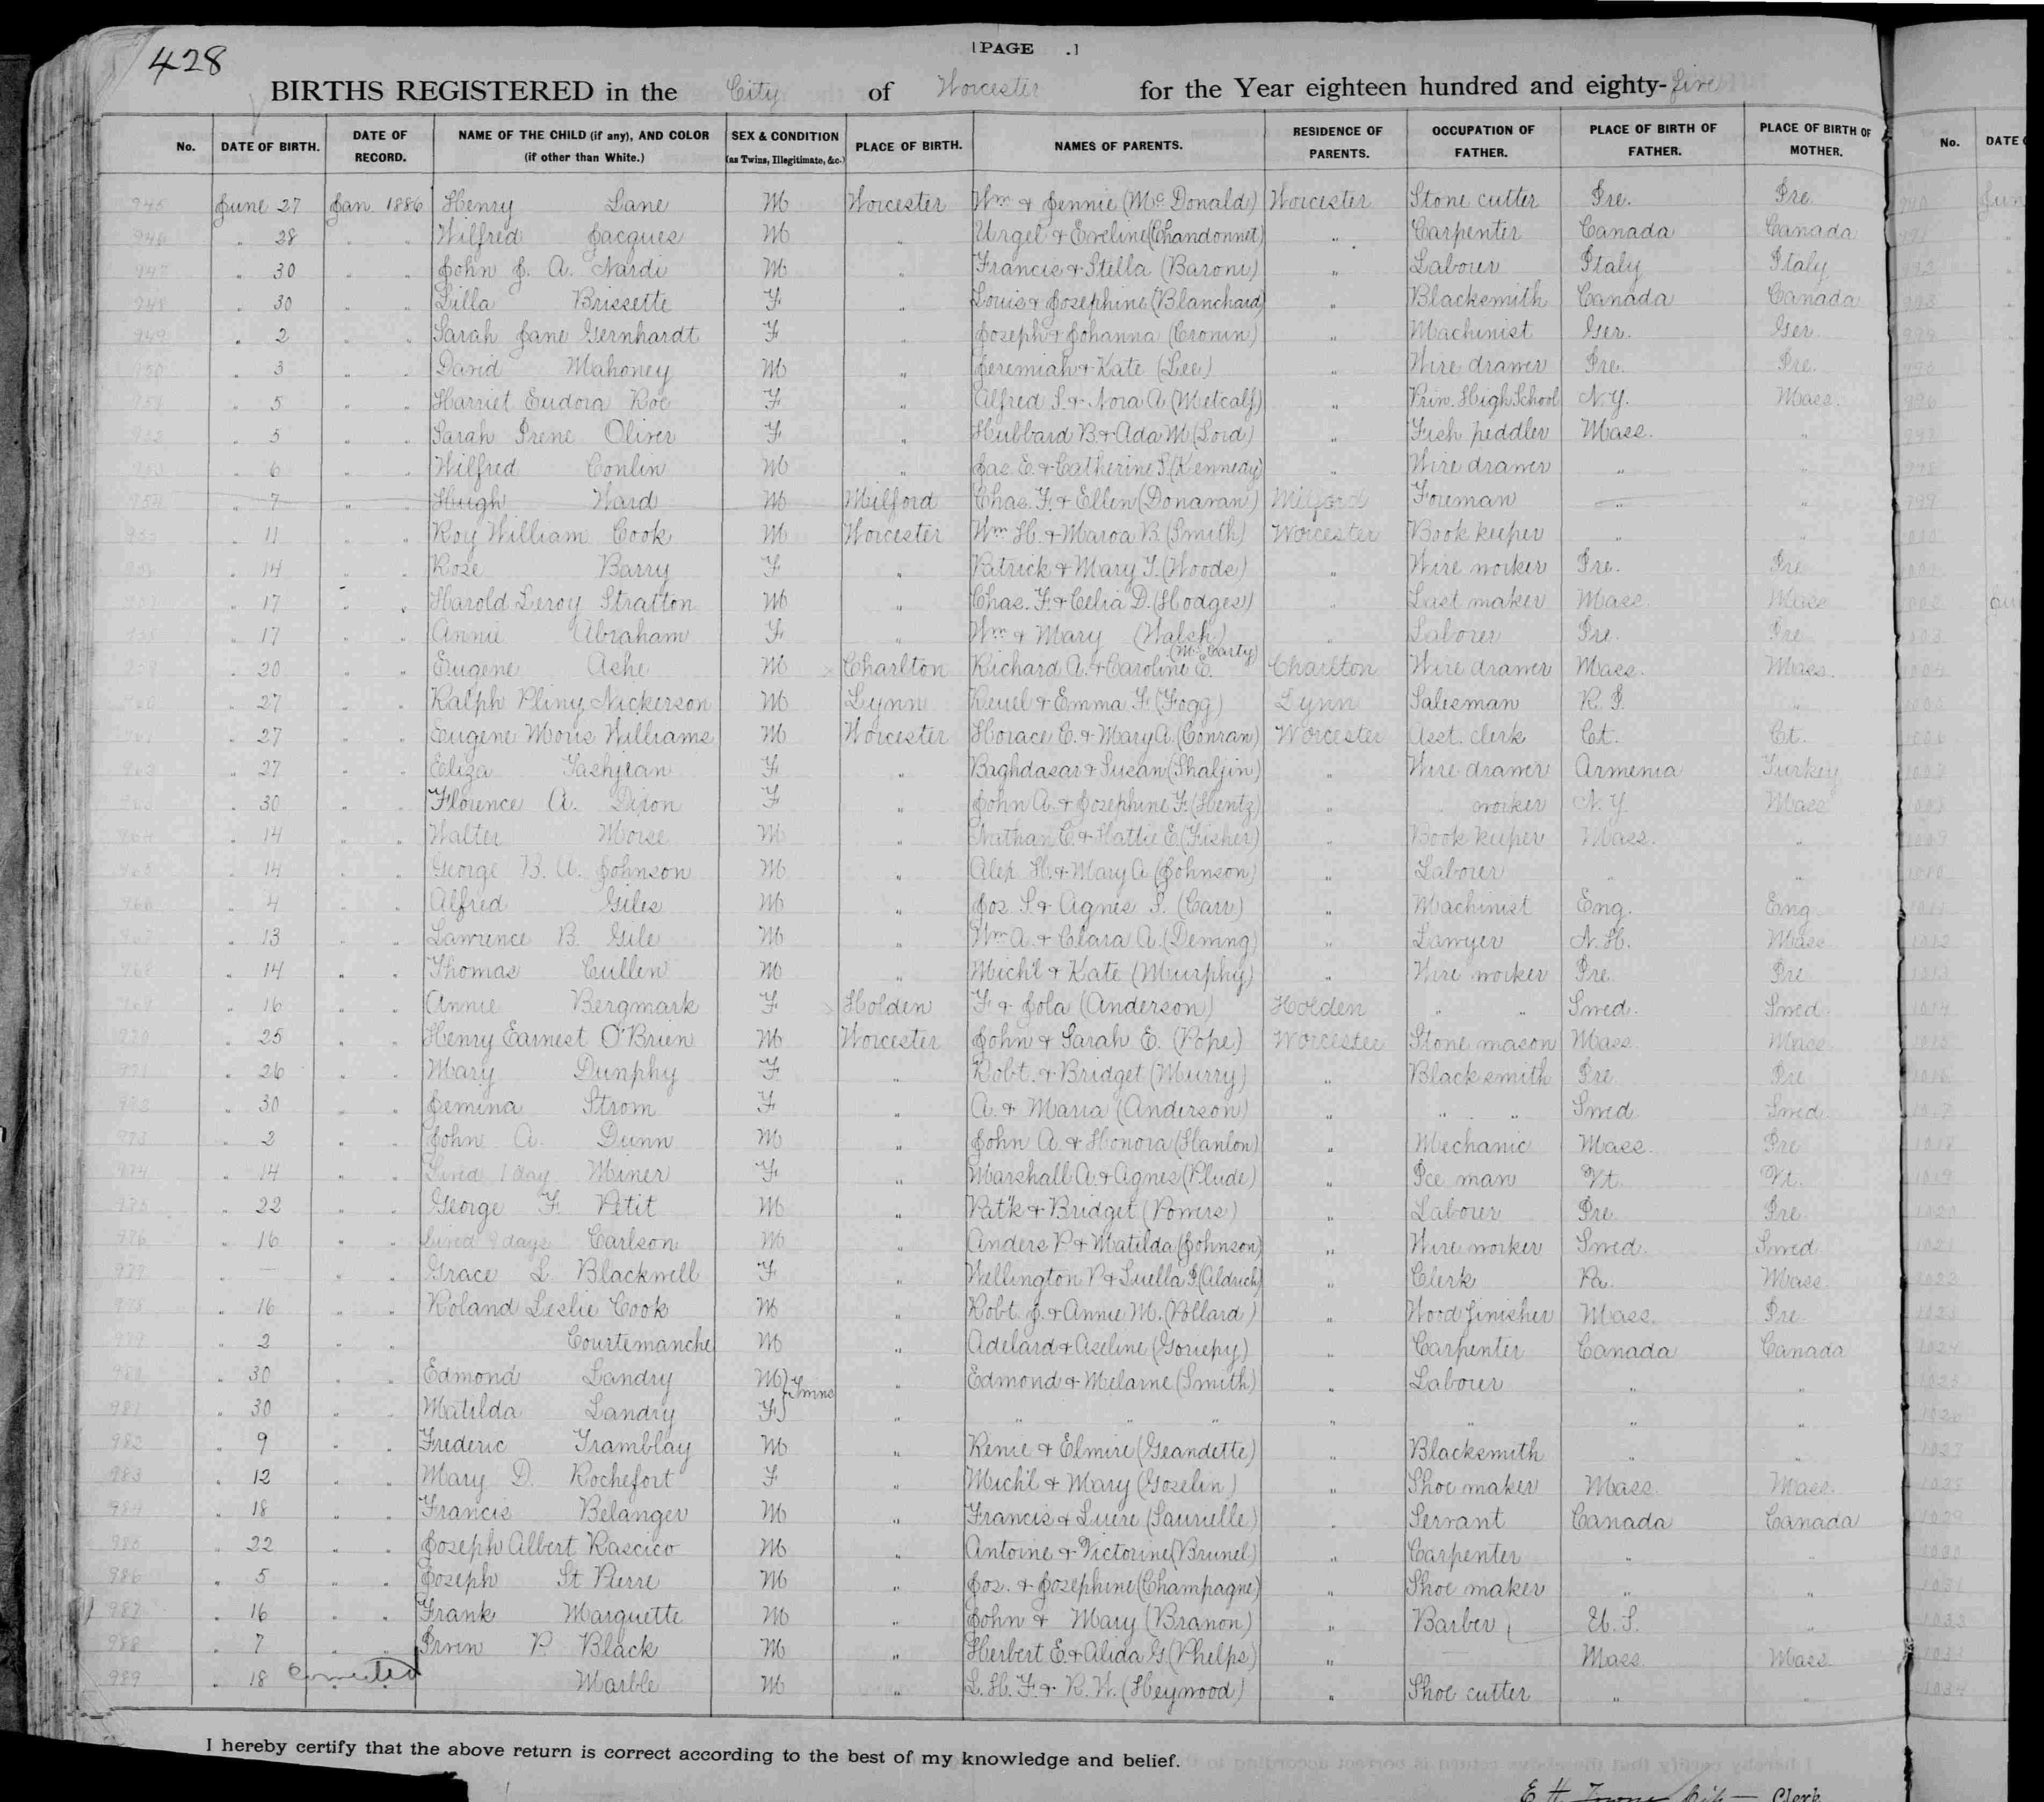 428
[PAGE .]
BIRTHS REGISTERED in the City of Worcester for the Year eighteen hundred and eighty-five
No. DATE OF BIRTH. DATE OF RECORD. NAME OF THE CHILD (if any), AND COLOR (if other than White.) SEX & CONDITION (as Twins, Illegitimate, &c.) PLACE OF BIRTH. NAMES OF PARENTS. RESIDENCE OF PARENTS. OCCUPATION OF FATHER. PLACE OF BIRTH OF FATHER. PLACE OF BIRTH OF MOTHER. No. DATE
945 June 27 Jan. 1886 Henry Lane M Worcester Wm & Jennie (Mc Donald) Worcester Stone cutter Ire. Ire.
946 " 28 " " Wilfred Jacques M " Urgel & Eveline (Chandonnet) " Carpenter Canada Canada
947 " 30 " " John J. A. Nardi M " Francis & Stella (Baroni) " Laborer Italy Italy
948 " 30 " " Lilla Brissette F " Louis & Josephine (Blanchard) " Blacksmith Canada Canada
949 " 2 " " Sarah Jane Gernhardt F " Joseph & Johanna (Cronin) " Machinist Ger. Ger.
950 " 3 " " David Mahoney M " Jeremiah & Kate (Lee) " Wire drawer Ire. Ire.
951 " 5 " " Harriet Eudora Roe F " Alfred S. & Nora A. (Metcalf) " Prin. High School N.Y. Mass.
952 " 5 " " Sarah Irene Oliver F " Hubbard B. & Ada M (Lord) " Fish peddler Mass. "
953 " 6 " " Wilfred Conlin M " Jas. E. & Catherine S. (Kennedy) " Wire drawer " "
954 " 7 " " Hugh Ward M Milford Chas. F. & Ellen (Donavan) Milford Foreman " "
955 " 11 " " Roy William Cook M Worcester Wm H. & Maroa B. (Smith) Worcester Book keeper " "
956 " 14 " " Rose Barry F " Patrick & Mary T. (Woods) " Wire worker Ire. Ire
957 " 17 " " Harold Leroy Stratton M " Chas. F. & Celia D. (Hodges) " Last maker Mass. Mass
958 " 17 " " Annie Abraham F " Wm & Mary (Walsh) " Laborer Ire. Ire
959 " 20 " " Eugene Ashe M Charlton Richard A. & Caroline E. (McCarty) Charlton Wire drawer Mass. Mass.
960 " 27 " " Ralph Pliny Nickerson M Lynn Reuel & Emma F. (Fogg) Lynn Salesman R. I. "
961 " 27 " " Eugene Moris Williams M Worcester Horace C. & Mary A. (Conran) Worcester Asst. clerk Ct. Ct.
962 " 27 " " Eliza Tashjian F " Baghdasar & Susan (Shaljin) " Wire drawer Armenia Turkey
963 " 30 " " Florence A. Dixon F " John A. & Josephine F. (Hentz) " " worker N.Y. Mass
964 " 14 " " Walter Morse M " Nathan C. & Hattie E. (Fisher) " Book keeper Mass. "
965 " 14 " " George B. A. Johnson M " Alex. H. & Mary A (Johnson) " Laborer " "
966 " 4 " " Alfred Giles M " Jos. S. & Agnes S. (Carr) " Machinist Eng. Eng.
967 " 13 " " Lawrence B. Gile M " Wm A. & Clara A. (Deming) " Lawyer N. H. Mass
968 " 14 " " Thomas Cullen M " Mich'l & Kate (Murphy) " Wire worker Ire Ire
969 " 16 " " Annie Bergmark F Holden F. & Jola (Anderson) Holden " " Swed. Swed.
970 " 25 " " Henry Earnest O'Brien M Worcester John & Sarah E. (Pope) Worcester Stone mason Mass. Mass
971 " 26 " " Mary Dunphy F " Robt. & Bridget (Murry) " Blacksmith Ire Ire
972 " 30 " " Jemina Strom F " A. & Maria (Anderson) " " " Swed Swed.
973 " 2 " " John A. Dunn M " John A. & Honora (Hanlon) " Mechanic Mass. Ire
974 " 14 " " Lived 1 day Miner F " Marshall A. & Agnes (Plude) " Ice man Vt. Vt.
975 " 22 " " George F. Petit M " Pat'k & Bridget (Powers) " Laborer Ire. Ire
976 " 16 " " Lived 9 days Carlson M " Anders P. & Matilda (Johnson) " Wire worker Swed. Swed
977 " — " " Grace L. Blackwell F " Wellington P. & Luella J. (Aldrich) " Clerk Pa. Mass.
978 " 16 " " Roland Leslie Cook M " Robt. J. & Annie M. (Pollard) " Wood finisher Mass. Ire
979 " 2 " " Courtemanche M " Adelard & Aseline (Goriepy) " Carpenter Canada Canada
980 " 30 " " Edmond Landry M } Twins " Edmond & Melaine (Smith) " Laborer " "
981 " 30 " " Matilda Landry F } " " " " " " " "
982 " 9 " " Frederic Tramblay M " Renie & Elmire (Geandette) " Blacksmith " "
983 " 12 " " Mary D. Rochefort F " Mich'l & Mary (Goselin) " Shoe maker Mass. Mass.
984 " 18 " " Francis Belanger M " Francis & Luere (Laurielle) " Servant Canada Canada
985 " 22 " " Joseph Albert Rascico M " Antoine & Victorine (Brunel) " Carpenter " "
986 " 5 " " Joseph St Pierre M " Jos. & Josephine (Champagne) " Shoe maker " "
987 " 16 " " Frank Marquette M " John & Mary (Branon) " Barber U. S. "
988 " 7 " " Irvin P. Black M " Herbert E. & Alida G. (Phelps) " — Mass. Mass.
989 " 18 Corrected Marble M " L. H. F. & R. W. (Heywood) " Shoe cutter " "
I hereby certify that the above return is correct according to the best of my knowledge and belief.
E. H. Towne City Clerk